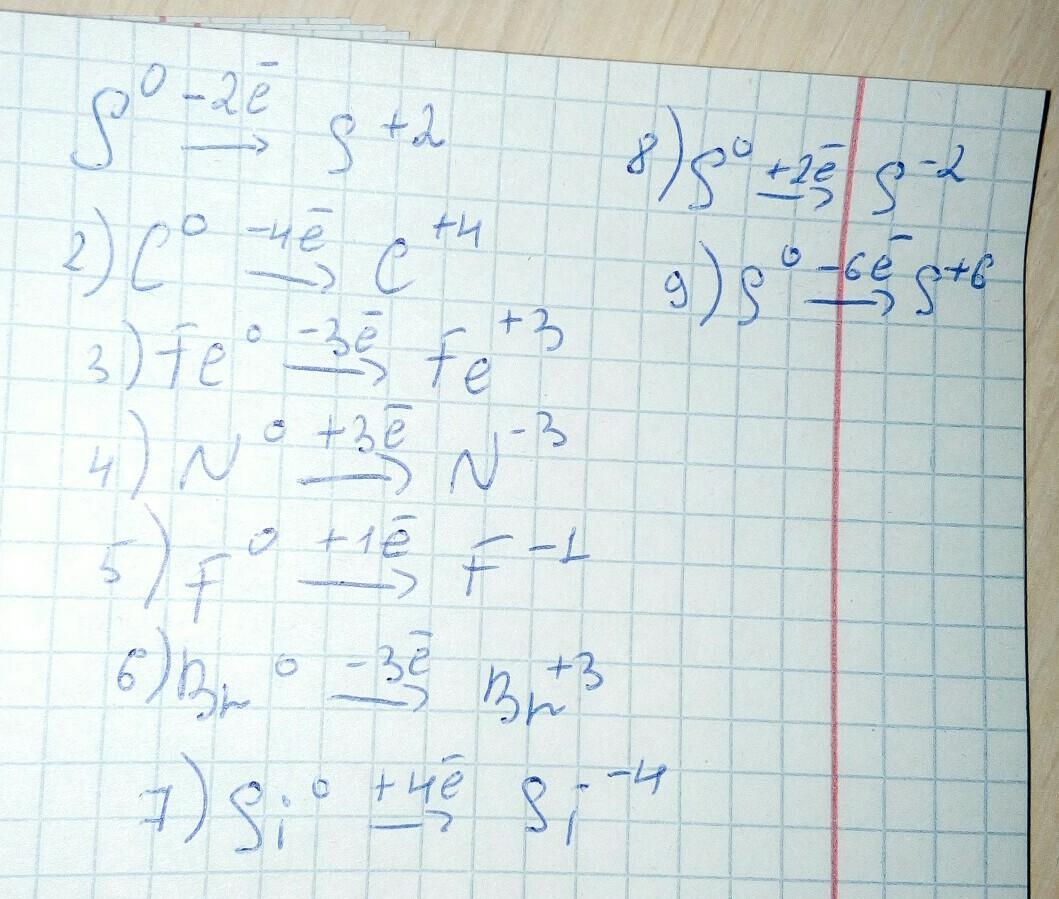 S⁰ -2ē → S⁺²
2) C⁰ -4ē → C⁺⁴
3) Fe⁰ -3ē → Fe⁺³
4) N⁰ +3ē → N⁻³
5) F⁰ +1ē → F⁻¹
6) Br⁰ -3ē → Br⁺³
7) Si⁰ +4ē → Si⁻⁴
8) S⁰ +2ē → S⁻²
9) S⁰ -6ē → S⁺⁶